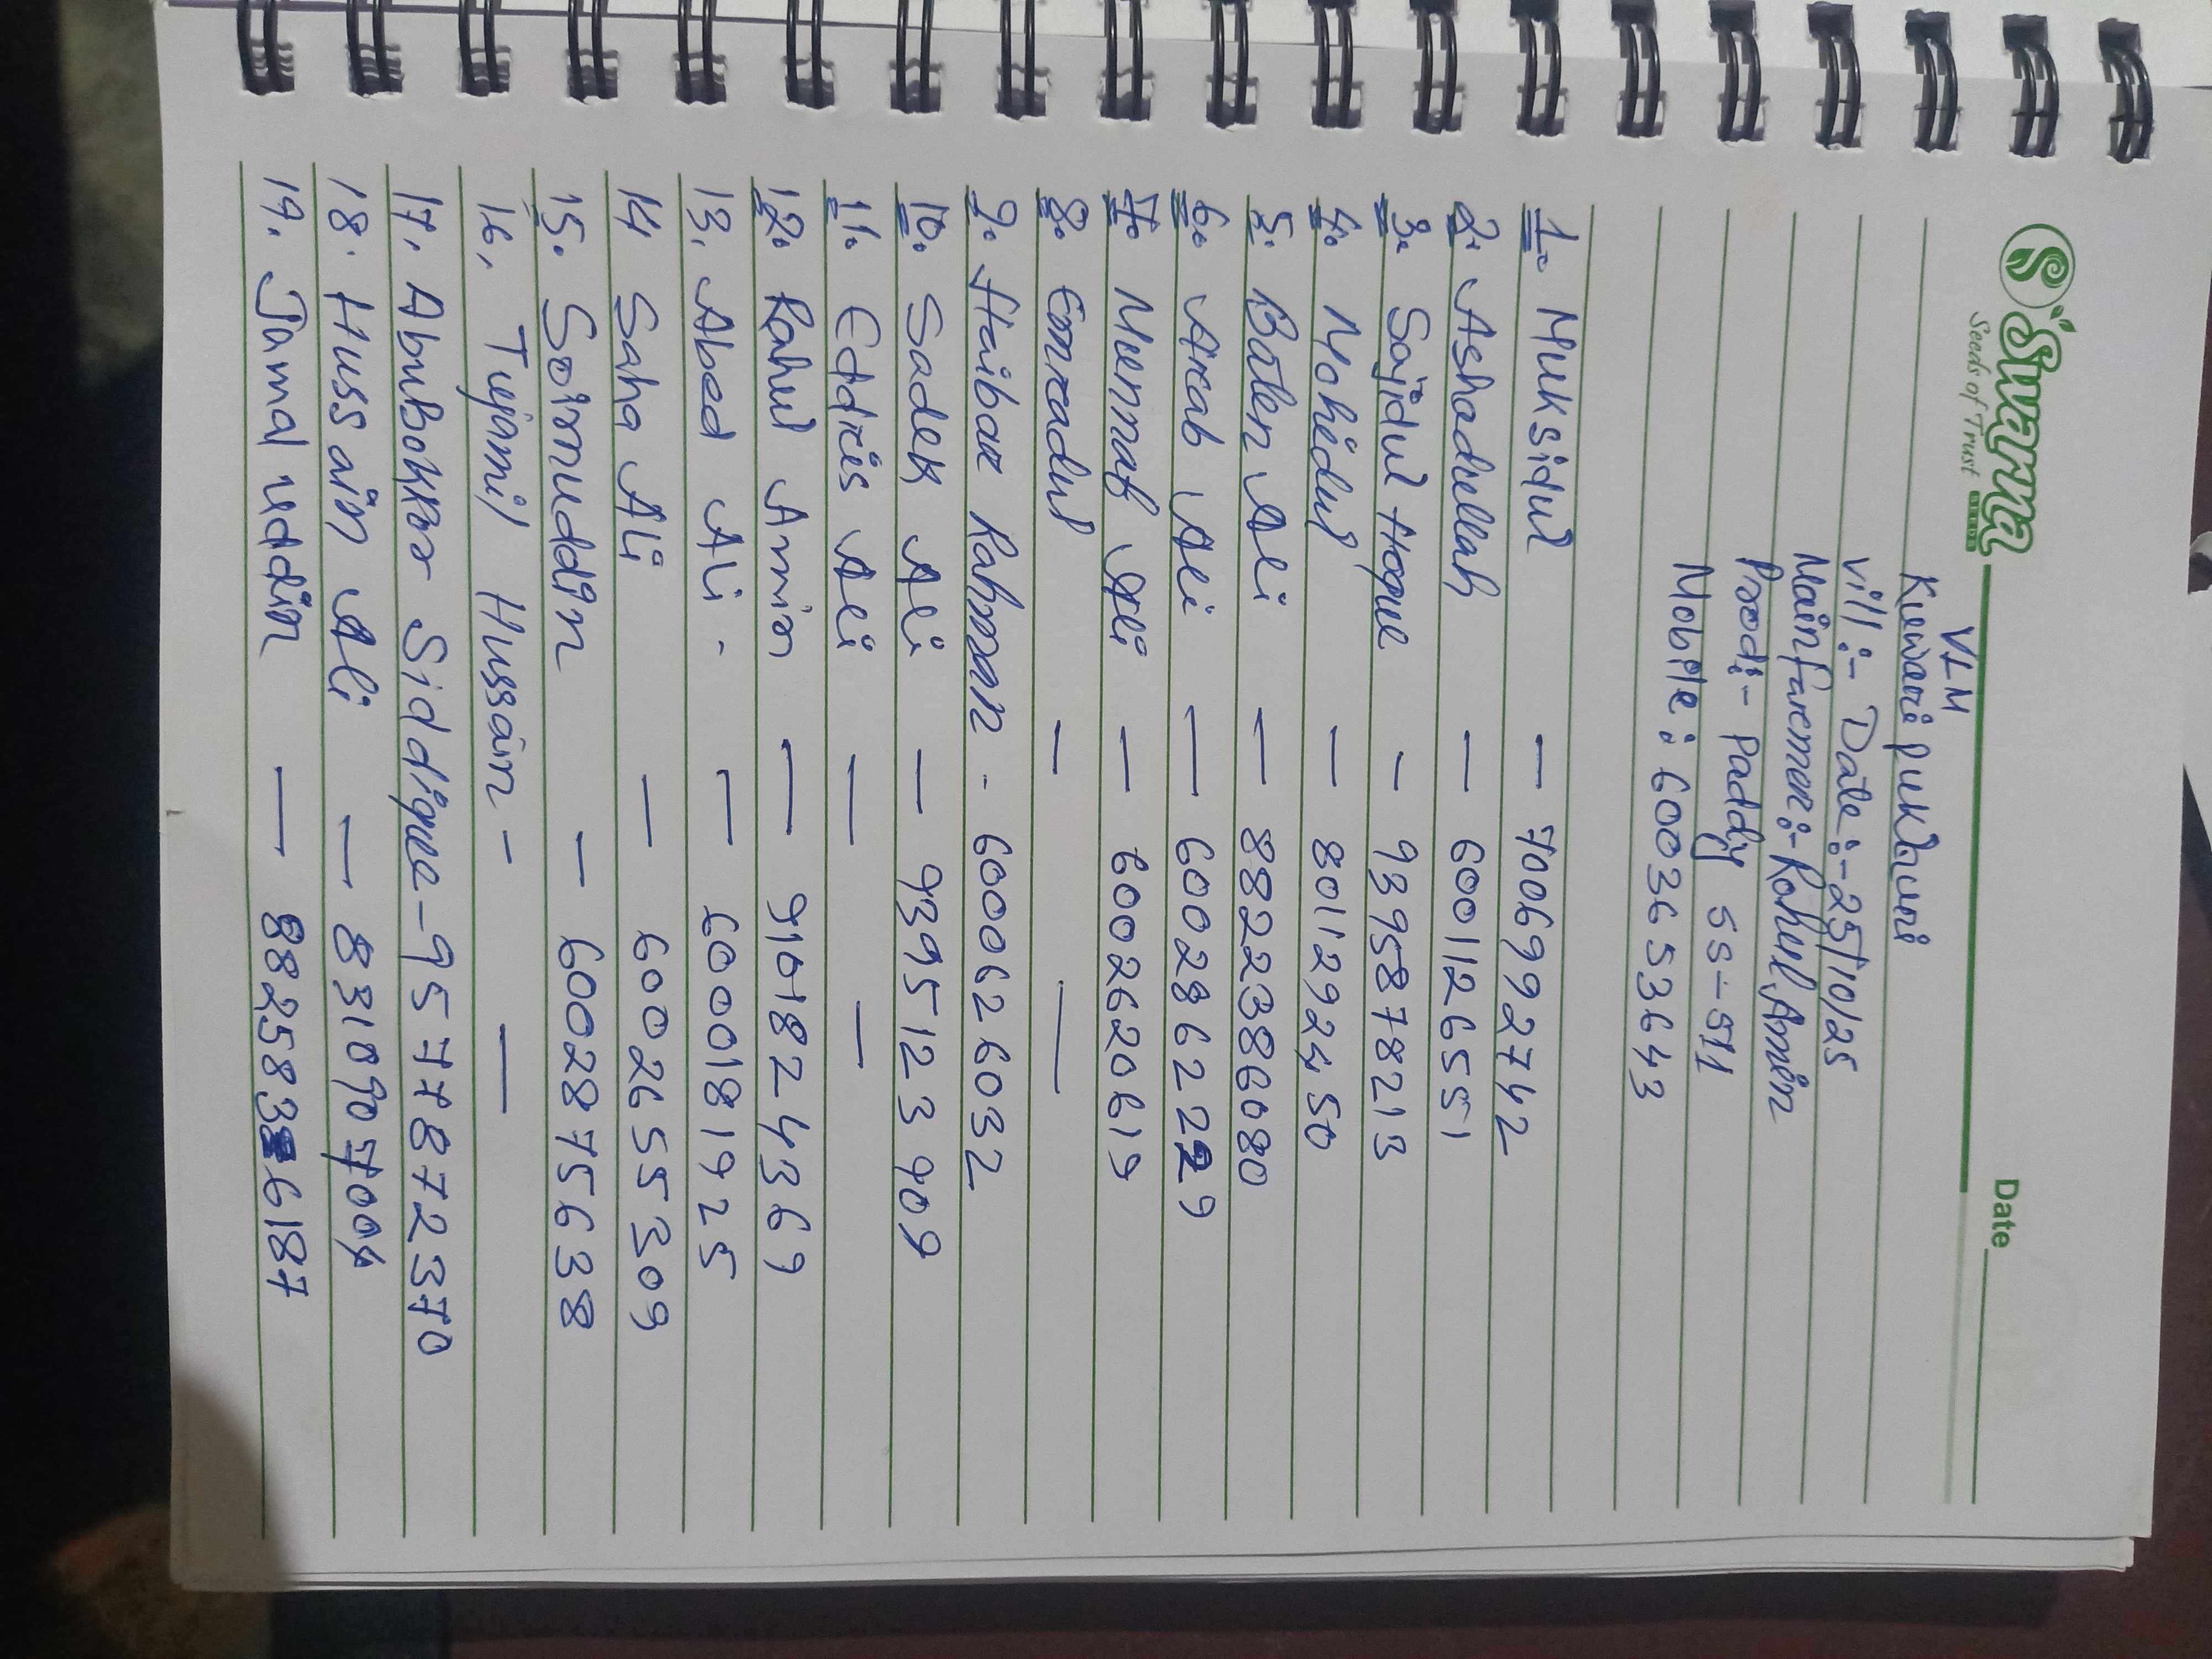 Suvarna
Seeds of Trust
Date
VLM
Kuwari pukhuri
Vill :- Date :- 25/10/25
Main farmer :- Rohul Amin
Prod :- Paddy SS-511
Mobile : 6003653643
1. Muksidul — 7006992742
2. Ashadullah — 6001126551
3. Sajidul Hoque — 9395878213
4. Mohidul — 8011292450
5. Baten Ali — 8822386080
6. Arab Ali — 6002862229
7. Nennab Ali — 6002620619
8. Emradul — —
9. Haibar Rahman - 6000626032
10. Sadek Ali — 9395123909
11. Eddris Ali — —
12. Rahul Amin — 9101824369
13. Abed Ali - — 6000181925
14. Saha Ali — 6002655309
15. Soimuddin — 6002875638
16. Tujamil Hussain - —
17. Abubokkor Siddique - 9577872370
18. Hussain Ali — 8310907004
19. Jamal uddin — 8825836187